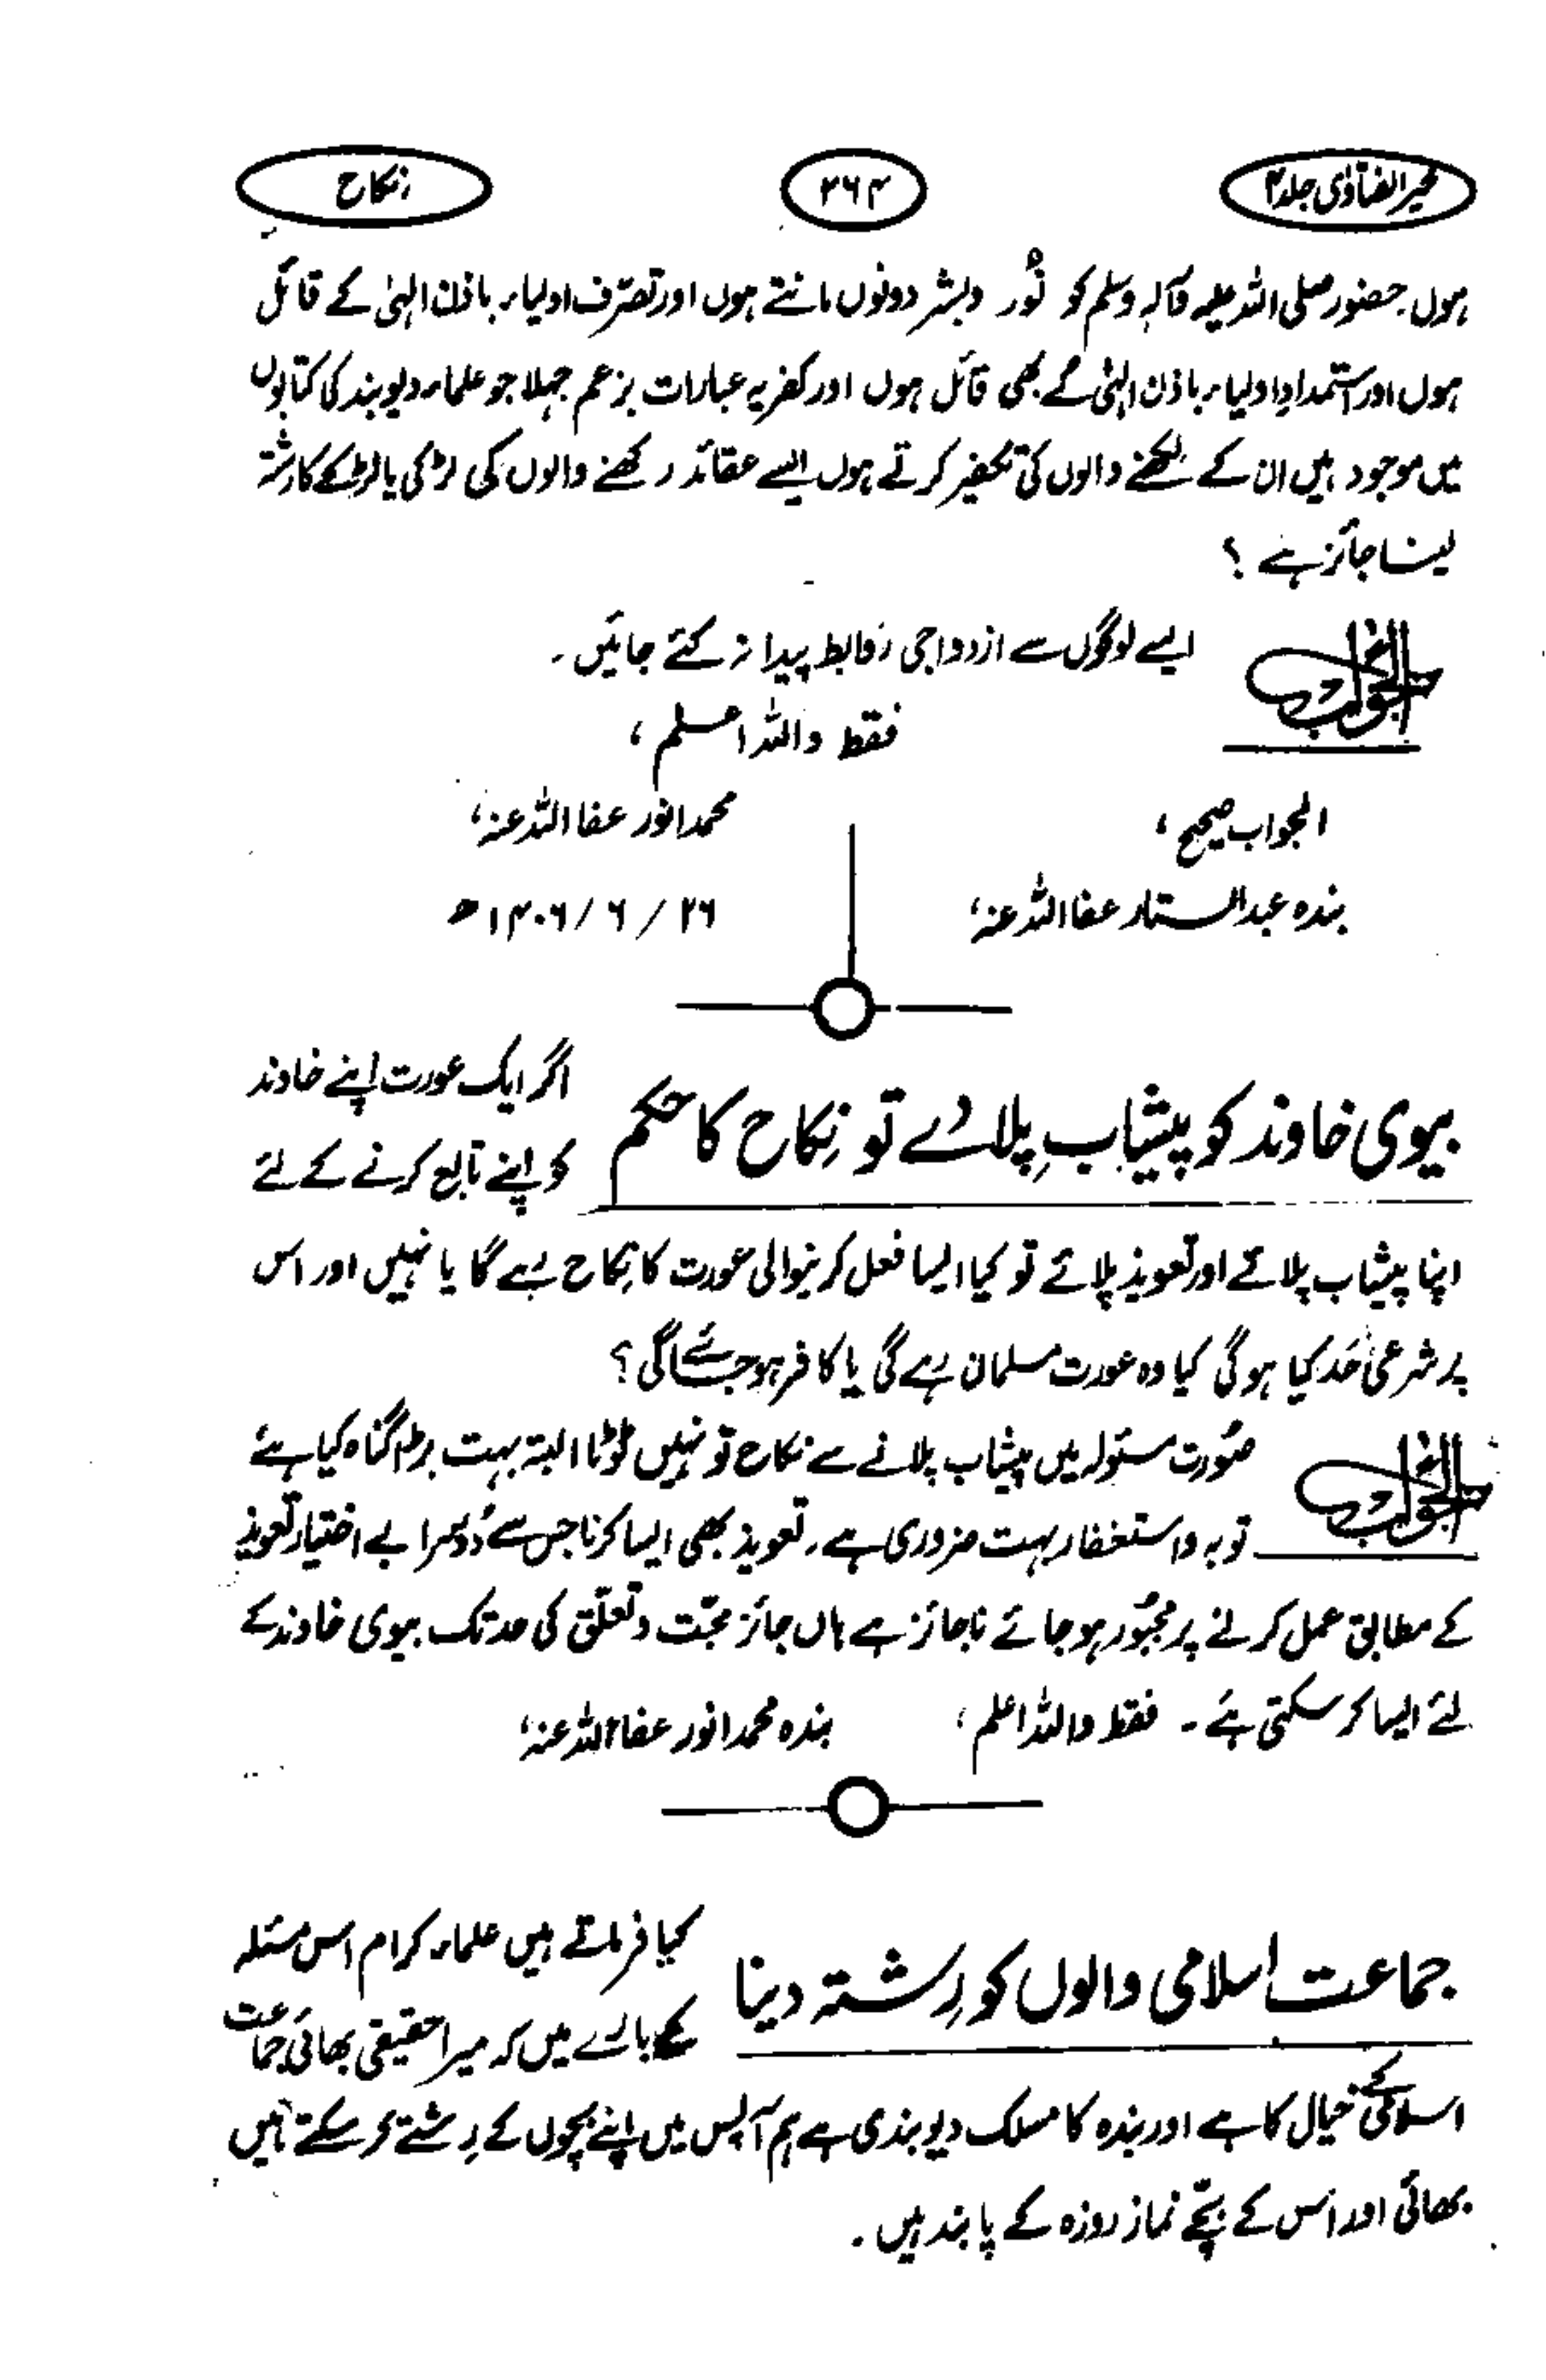 خیر الفتاوٰی جلد ۴
۳۶۴
نکاح
ہوں حضور صلی اللہ علیہ وآلہ وسلم کو نُور و بشر دونوں مانتے ہوں اور تصرّف اولیاء باذن الہٰی کے قائل
ہوں اور استمداد اولیاء باذن الہٰی کے بھی قائل ہوں اور کفریہ عبارات بزعم جہلا جو علماء دیوبند کی کتابوں
میں موجود ہیں ان کے لکھنے والوں کی تکفیر کرتے ہوں ایسے عقائد رکھنے والوں کی لڑکی یا لڑکے کا رشتہ
لینا جائز ہے ؟
الجواب
ایسے لوگوں سے ازدواجی روابط پیدا نہ کئے جائیں ۔
فقط واللہ اعلم ،
الجواب صحیح ،
محمد انور عفا اللہ عنہ،
بندہ عبدالستار عفا اللہ عنہ،
۲۶ / ۶ / ۱۴۰۶ھ
بیوی خاوند کو پیشاب پِلا دے تو نِکاح کا حکم
اگر ایک عورت اپنے خاوند
کو اپنے تابع کرنے کے لئے
اپنا پیشاب پلائے اور تعویذ پلائے تو کیا ایسا فعل کرنیوالی عورت کا نِکاح رہے گا یا نہیں اور اس
پر شرعی حَد کیا ہوگی کیا وہ عورت مسلمان رہے گی یا کافر ہو جائے گی ؟
الجواب
صُورت مسئولہ میں پیشاب پلانے سے نکاح تو نہیں ٹوٹا البتہ بہت بڑا گناہ کیا ہے
توبہ و استغفار بہت ضروری ہے ۔ تعویذ بھی ایسا کرنا جس سے دُوسرا بے اختیار تعویذ
کے مطابق عمل کرنے پر مجبُور ہو جائے ناجائز ہے ہاں جائز محبّت و تعلّق کی حد تک بیوی خاوند کے
لئے ایسا کر سکتی ہے ۔ فقط واللہ اعلم ، بندہ محمد انور عفا اللہ عنہ،
جماعت اسلامی والوں کو رِشتہ دینا
کیا فرماتے ہیں علماء کرام اس مسئلہ
کے بارے میں کہ میرا حقیقی بھائی جماعت
اسلامی کے خیال کا ہے اور بندہ کا مسلک دیوبندی ہے ہم آپس میں اپنے بچوں کے رِشتے کر سکتے ہیں
بھائی اور اس کے بچّے نماز روزہ کے پابند ہیں ۔